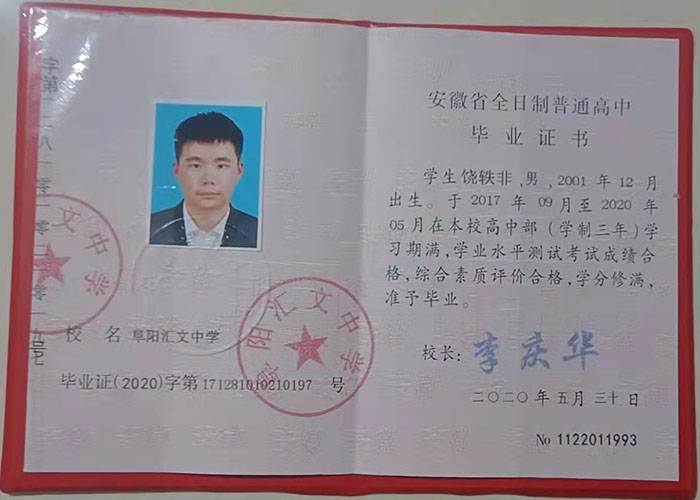 字第
一二八一零一零二一零
一九七号
阜阳汇文中学
校 名 阜阳汇文中学
阜阳汇文中学
毕业证(2020)字第171281010210197 号
安徽省全日制普通高中
毕业证书
学生饶轶非,男,2001 年 12 月
出生。于 2017 年 09 月至 2020 年
05 月在本校高中部(学制三年)学
习期满,学业水平测试考试成绩合
格,综合素质评价合格,学分修满,
准予毕业。
校长: 李庆华
二〇二〇年五月三十日
No 1122011993